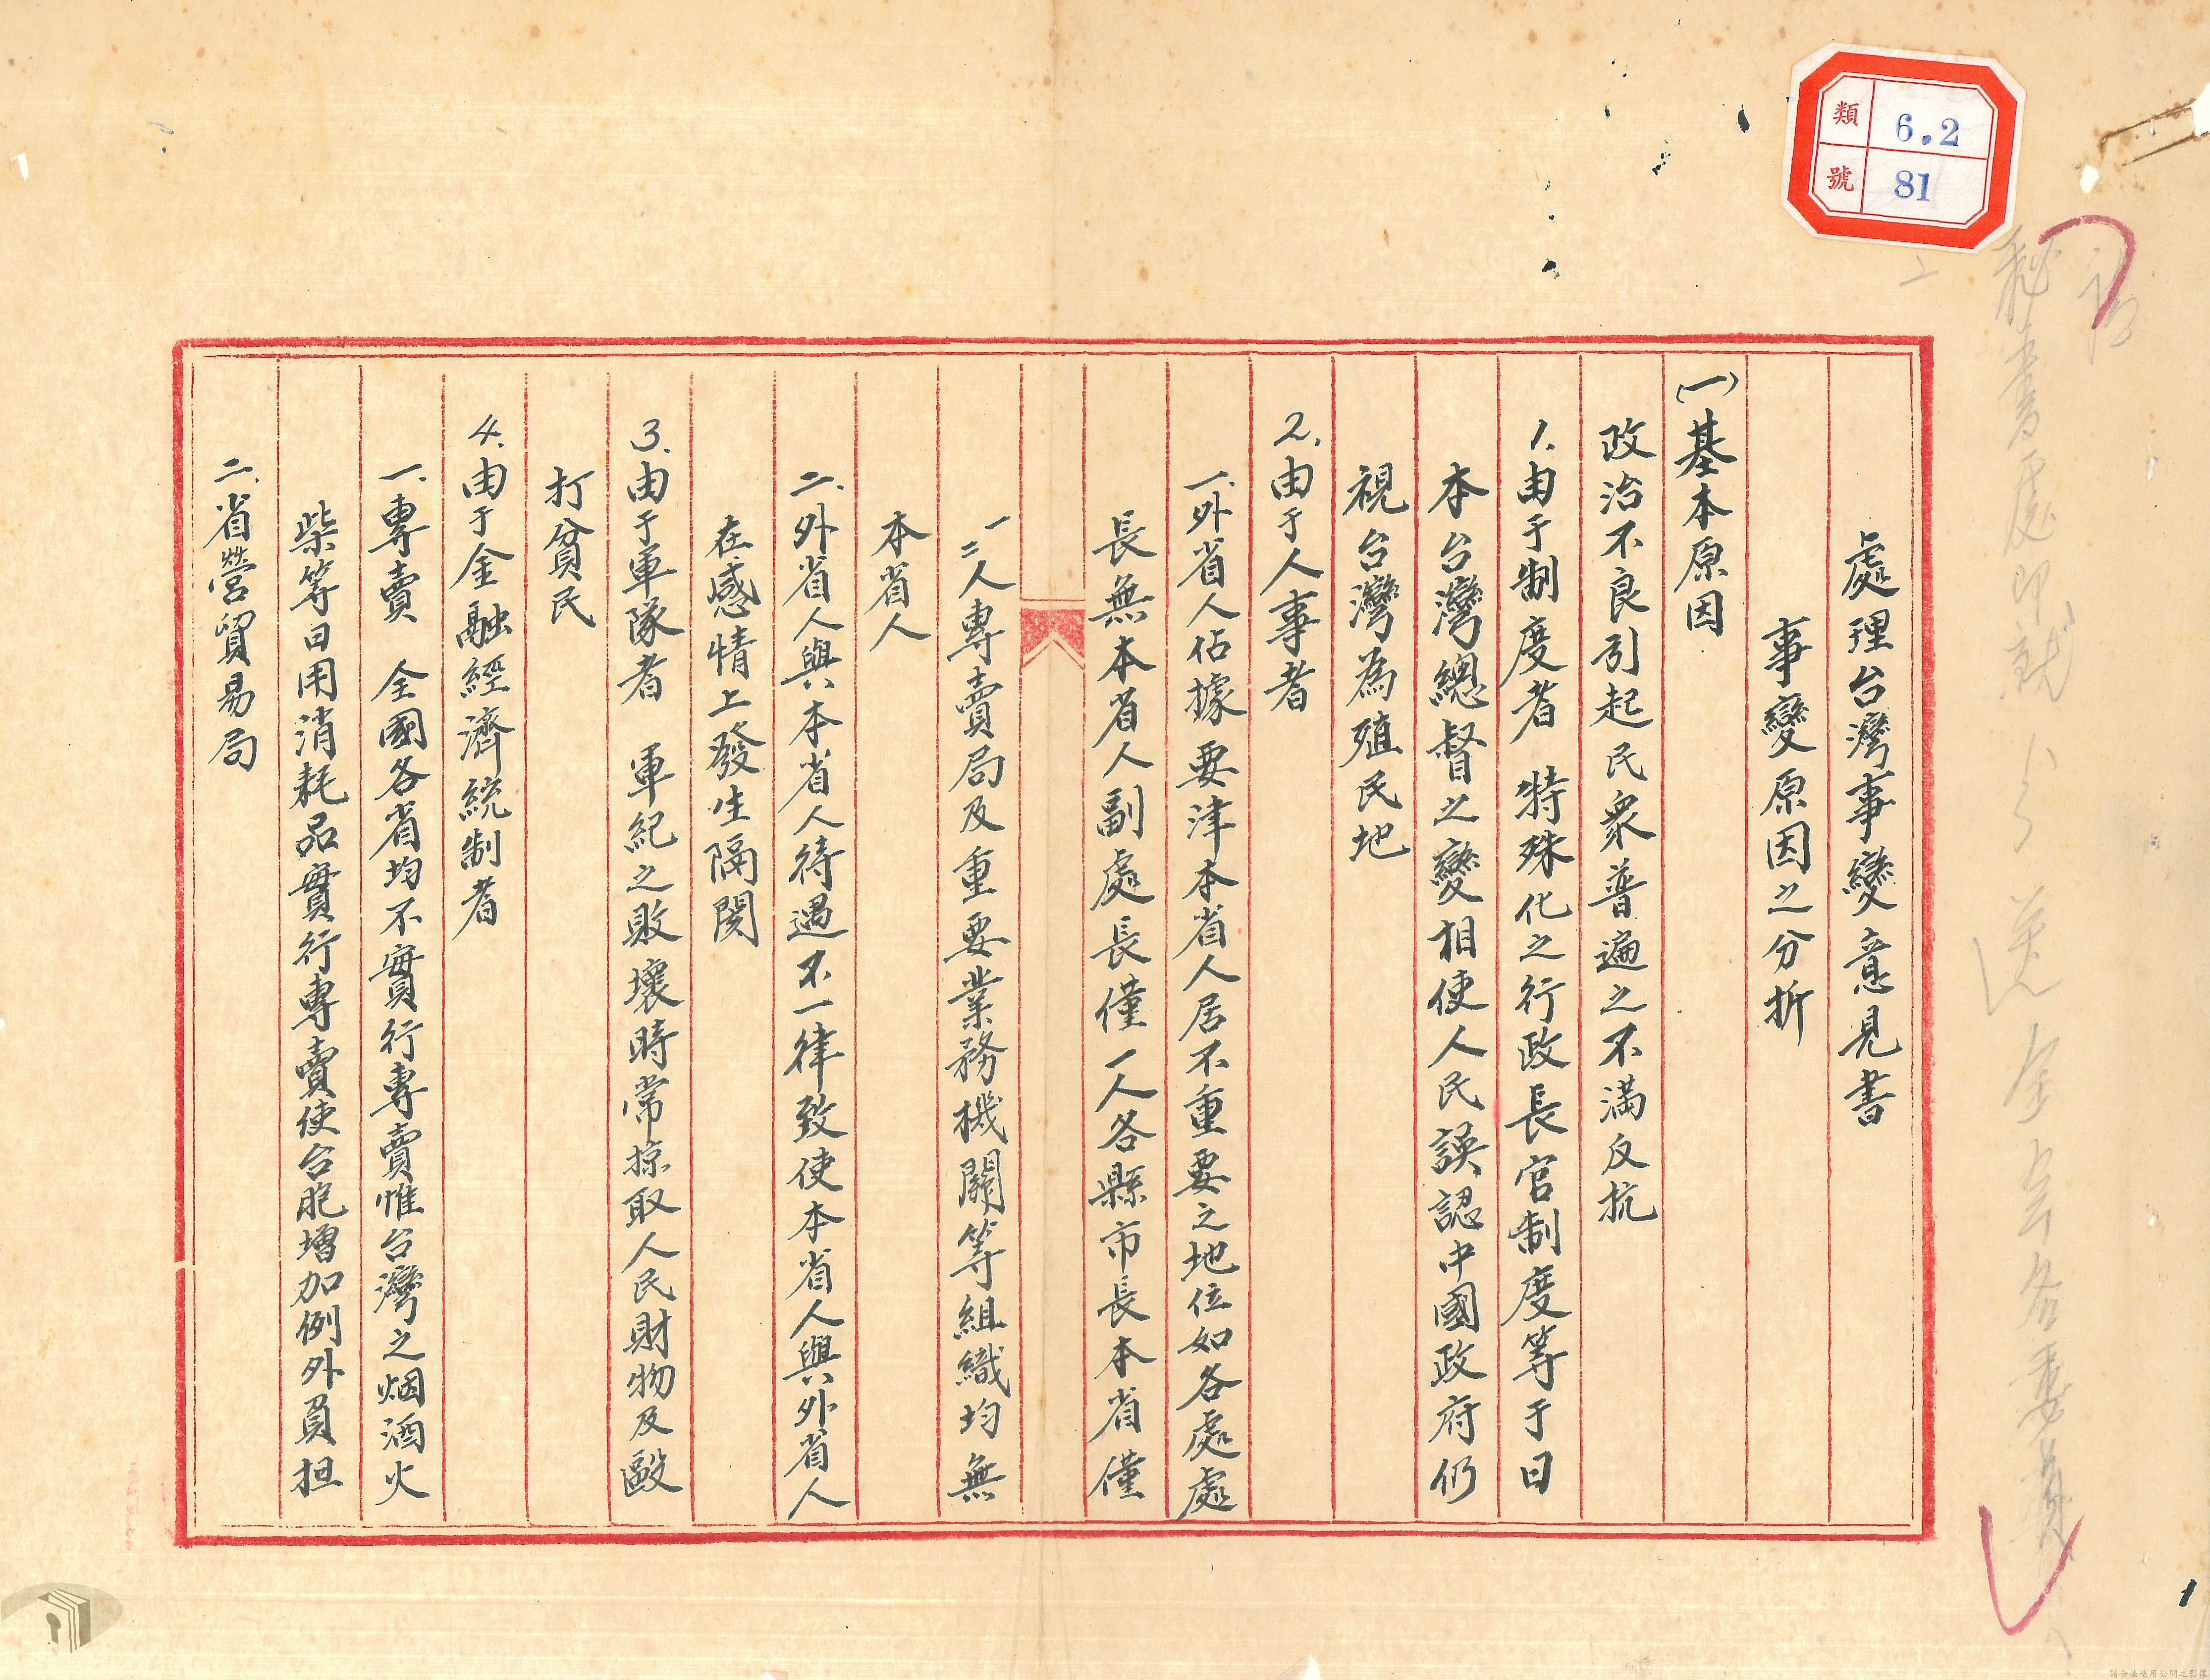 類 6.2
號 81
處理台灣事變意見書
事變原因之分折
(一)基本原因
政治不良引起民衆普遍之不滿反抗
1.由于制度者 特殊化之行政長官制度等于日
本台灣總督之變相使人民誤認中國政府仍
視台灣為殖民地
2.由于人事者
一.外省人佔據要津本省人居不重要之地位如各處處
長無本省人副處長僅一人各縣市長本省僅
一二人專賣局及重要業務機關等組織均無
本省人
二.外省人與本省人待遇不一律致使本省人與外省人
在感情上發生隔閡
3.由于軍隊者 軍紀之敗壞時常掠取人民財物及毆
打貧民
4.由于金融經濟統制者
一.專賣 全國各省均不實行專賣惟台灣之烟酒火
柴等日用消耗品實行專賣使台胞增加例外負担
二.省營貿易局
請合法使用公開之影像